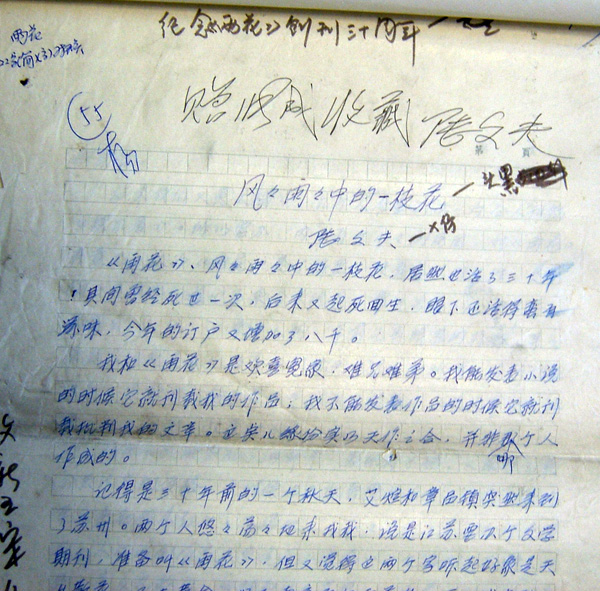 纪念《雨花》创刊三十周年
雨花
55
杨
赠 收藏 陆文夫
风风雨雨中的一枝花
陆文夫
《雨花》、风々雨々中的一枝花,居然也活了三十年
!其间曾经死过一次,后来又起死回生,眼下还活得蛮有
滋味,今年的订户又增加了八千。
我和《雨花》是欢喜冤家,难兄难弟。我能发表小说
的时候它就刊载我的作品;我不能发表作品的时候它就刊
载批判我的文章。这类儿缘份实乃天作之合,并非哪个人
作成的。
记得是三十年前的一个秋天,艾煊和章品镇突然来到
了苏州。两个人悠々荡々地来找我,说是江苏要办个文学
期刊,准备叫《雨花》,但又觉得这两个字听起好像是天